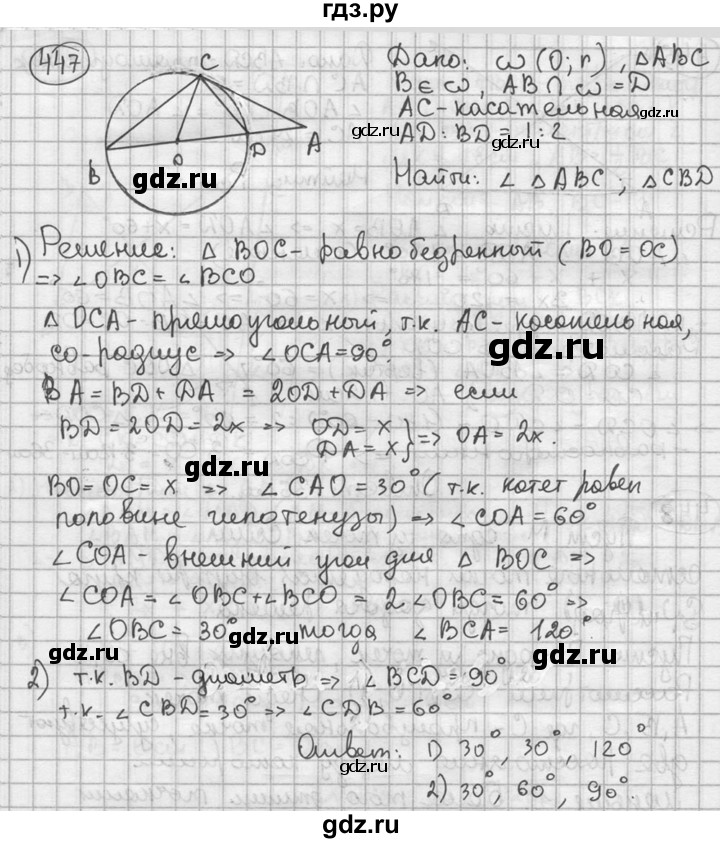 гдз.ру
447
C
B
O
D
A
Дано: ω (O; r), △ABC
B ∈ ω, AB ∩ ω = D
AC - касательная
gdz.ru
gdz.ru
AD : BD = 1 : 2
gdz.ru
Найти: ∠ △ABC; △CBD
gdz.ru
1) Решение: △ BOC - равнобедренный (BO = OC)
=> ∠OBC = ∠BCO
△ OCA - прямоугольный, т.к. AC - касательная,
CO - радиус => ∠OCA = 90°.
gdz.ru
BA = BD + DA = 2OD + DA => если
BD = 2OD = 2x => OD = x
DA = x } => OA = 2x.
gdz.ru
BO = OC = x => ∠CAO = 30° (т.к. катет равен
половине гипотенузы) => ∠COA = 60°
∠COA - внешний угол для △ BOC =>
∠COA = ∠OBC + ∠BCO = 2∠OBC = 60° =>
∠OBC = 30°, тогда ∠BCA = 120°.
gdz.ru
gdz.ru
gdz.ru
2) т.к. BD - диаметр => ∠BCD = 90°
т.к. ∠CBD = 30° => ∠CDB = 60°
Ответ: 1) 30°, 30°, 120°
gdz.ru
2) 30°, 60°, 90°.
гдз.ру